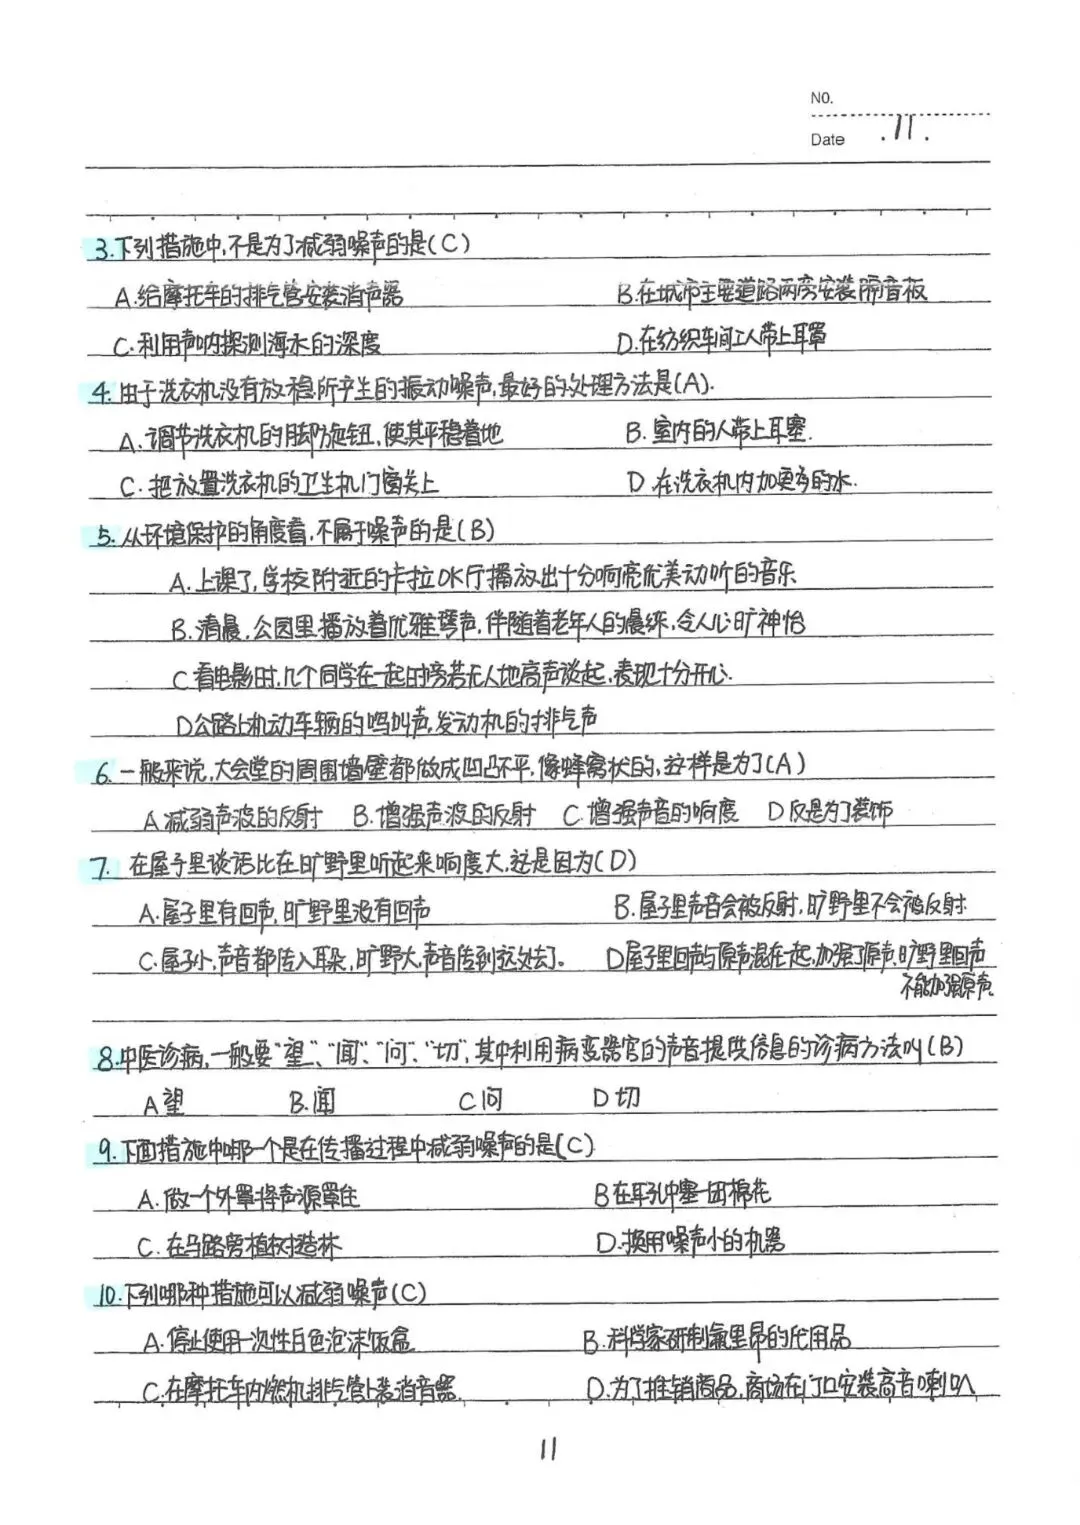 NO.
Date .11.
3.下列措施中,不是为了减弱噪声的是(C)
A.给摩托车的排气管安装消声器 B.在城市主要道路两旁安装隔音板
C.利用声呐探测海水的深度 D.在纺织车间工人带上耳罩
4.由于洗衣机没有放稳所产生的振动噪声,最好的处理方法是(A).
A.调节洗衣机的脚防旋钮,使其平稳着地 B.室内的人带上耳塞.
C.把放置洗衣机的卫生机门窗关上 D.在洗衣机内加更多的水.
5.从环境保护的角度看,不属于噪声的是(B)
A.上课了,学校附近的卡拉OK厅播放出十分响亮优美动听的音乐
B.清晨,公园里播放着优雅琴声,伴随着老年人的晨练,令人心旷神怡
C看电影时,几个同学在一起旁若无人地高声谈起,表现十分开心.
D公路上机动车辆的鸣叫声,发动机的排气声
6.一般来说,大会堂的周围墙壁都做成凹凸不平,像蜂窝状的,这样是为了(A)
A减弱声波的反射 B.增强声波的反射 C.增强声音的响度 D仅是为了装饰
7.在屋子里谈话比在旷野里听起来响度大,这是因为(D)
A.屋子里有回声,旷野里没有回声 B.屋子里声音会被反射,旷野里不会被反射
C.屋子小,声音都传入耳朵,旷野大,声音传到远处去了。 D屋子里回声与原声混在一起,加强了原声,旷野里回声
不能加强原声
8.中医诊病,一般要"望"、"闻"、"问"、"切",其中利用病变器官的声音提供信息的诊病方法叫(B)
A望 B.闻 C问 D切
9.下面措施中哪一个是在传播过程中减弱噪声的是(C)
A.做一个外罩将声源罩住 B在耳孔中塞一团棉花
C.在马路旁植树造林 D.换用噪声小的机器
10.下列哪种措施可以减弱噪声(C)
A.停止使用一次性白色泡沫饭盒 B.科学家研制氟里昂的代用品
C.在摩托车内燃机排气管上装消音器 D.为了推销商品,商场在门口安装高音喇叭
11